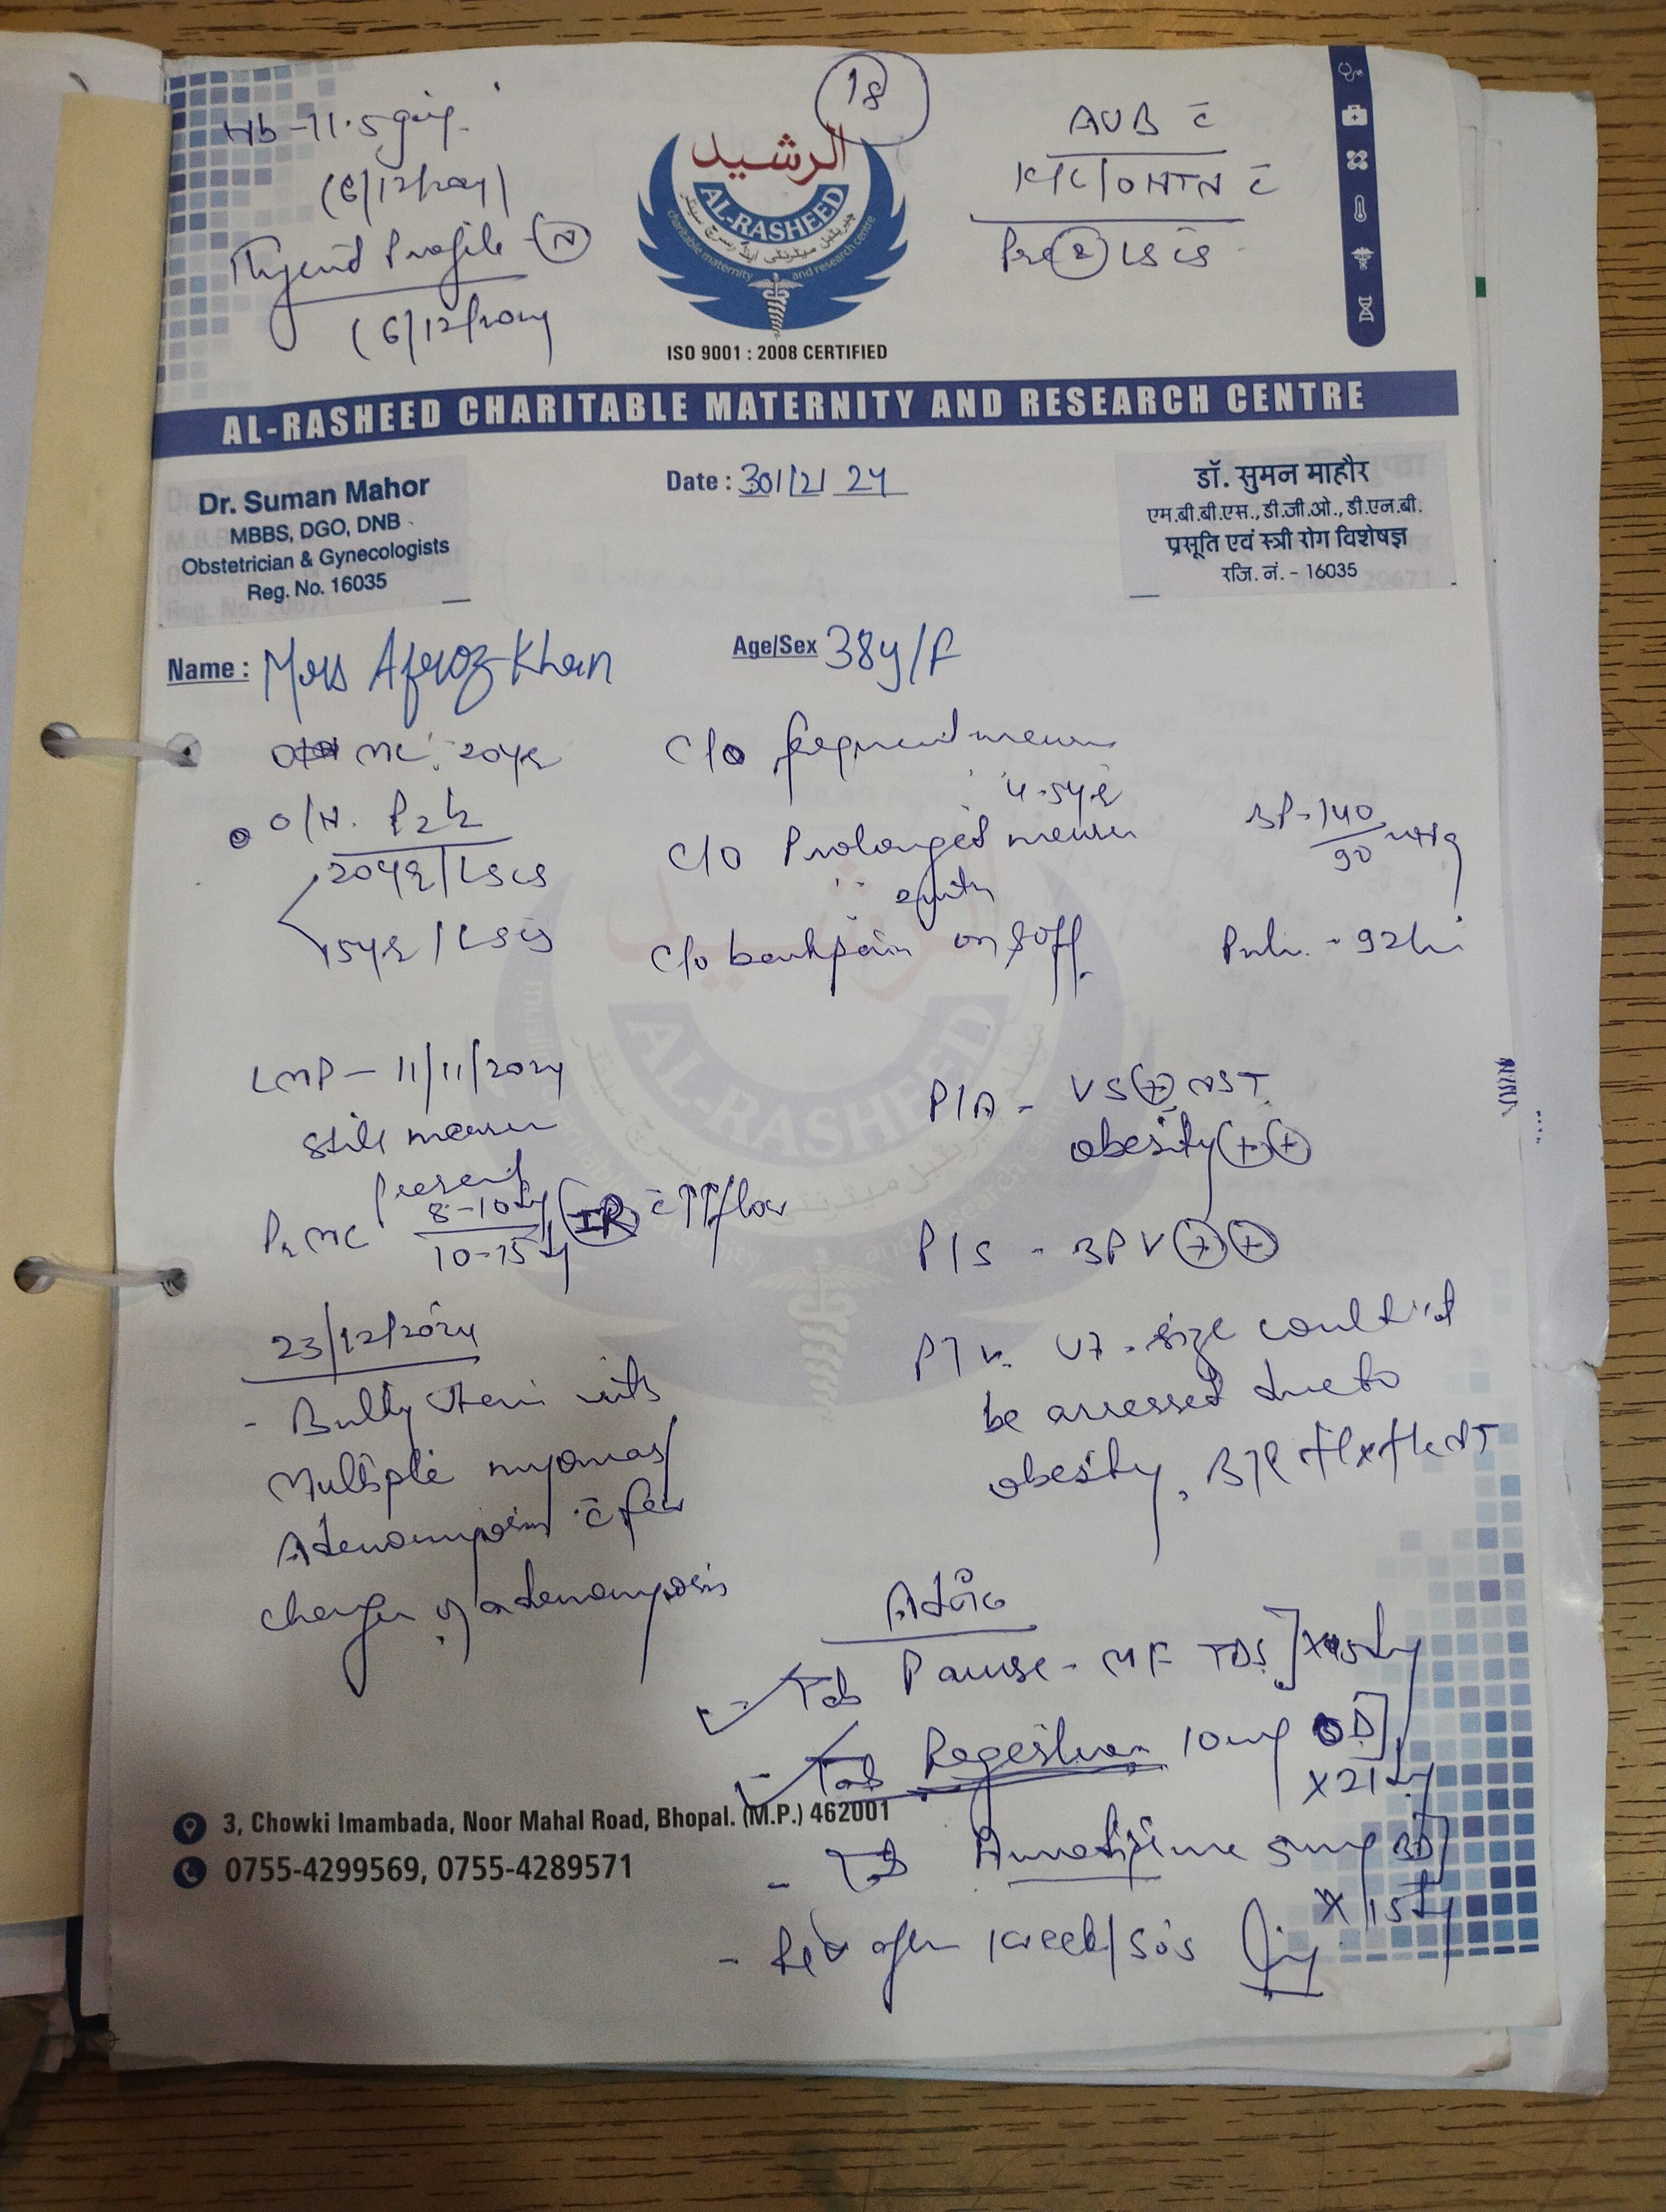 18
Hb - 11.5 gm%
(6/12/2024)
Thyroid Profile - (N)
(6/12/2024
AUB c̄
K/C/O HTN c̄
Pre (2) LSCS
الرشيد
AL-RASHEED
charitable maternity and research centre
ISO 9001 : 2008 CERTIFIED
AL-RASHEED CHARITABLE MATERNITY AND RESEARCH CENTRE
Dr. Suman Mahor
MBBS, DGO, DNB
Obstetrician & Gynecologists
Reg. No. 16035
Date : 30/12/24
डॉ. सुमन माहौर
एम.बी.बी.एस., डी.जी.ओ., डी.एन.बी.
प्रसूति एवं स्त्री रोग विशेषज्ञ
रजि. नं. - 16035
Name : Mrs Afroz Khan
Age/Sex 38y/F
O/H. P2L2
LSCS
15yr / LSCS
C/o
4-5yr
C/O Prolonged menses
C/o backpain on & off
BP - 140/90 mmHg
Pulse - 92/mi
LMP - 11/11/2024
still menses
present
Pr MC 8-10dy/10-15dy (IR) c̄ ↑↑ flow
P/A - obesity (+)(+)
P/S - BPV (+)(+)
P/V. UT. size couldn't
be assessed due to
obesity, B/L
23/12/2024
- Bulky uterus with
Multiple myomas/
Adenomyosis c̄ few
changes of adenomyosis
Advice
- Tab Pause - MF TDS]
- Tab Regestrone 10mg OD]
x 21dy
- Tab 5mg BD]
x 15dy
- Rev after 1 week/ SOS
3, Chowki Imambada, Noor Mahal Road, Bhopal. (M.P.) 462001
0755-4299569, 0755-4289571